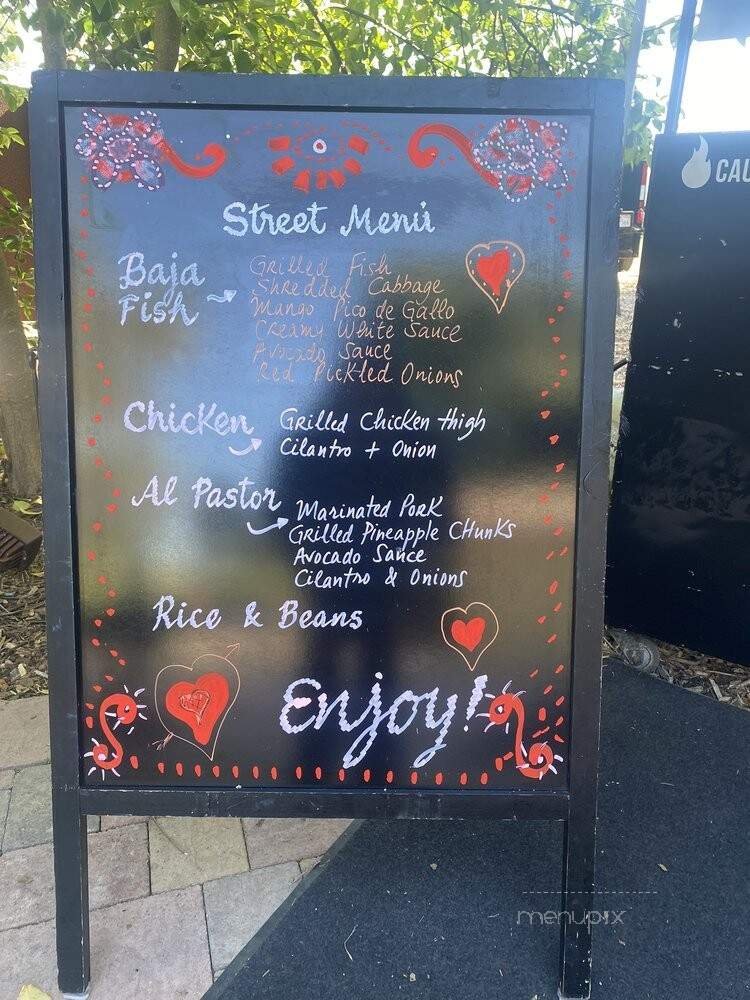 Street Menú
Baja Fish
Grilled Fish
Shredded Cabbage
Mango Pico de Gallo
Creamy White Sauce
Avocado Sauce
Red Pickled Onions
Chicken
Grilled Chicken thigh
Cilantro + Onion
Al Pastor
Marinated Pork
Grilled Pineapple CHunks
Avocado Sauce
Cilantro & Onions
Rice & Beans
Enjoy!
CAU
menupix